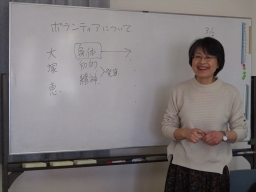 ボランティアについて
大塚 恵
身体
知的
精神